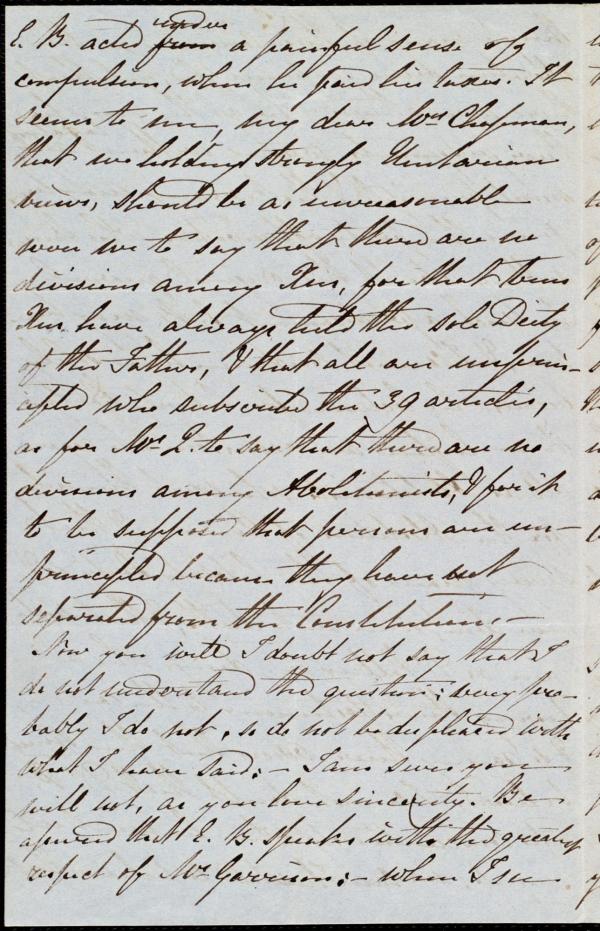 E. B. acted under from a painful sense of
compulsion, when he paid his taxes. It
seems to me, my dear Mrs Chapman,
that we holding strongly Unitarian
views, should be as unreasonable
were we to say that there are no
divisions among Xns, for that true
Xns have always held the sole Deity
of the Father, & that all are unprin-
cipled who subscribe the 39 articles,
as for Mr Q. to say that there are no
divisions among Abolitionists, & for it
to be supposed that persons are un-
principled because they have not
separated from the Constitution. -
Now you will I doubt not say that I
do not understand the question; very pro-
bably I do not, so do not be displeased with
what I have said; - I am sure you
will not, as you love sincerity. Be
assured that E. B. speaks with the greatest
respect of Mr Garrison; - when I see